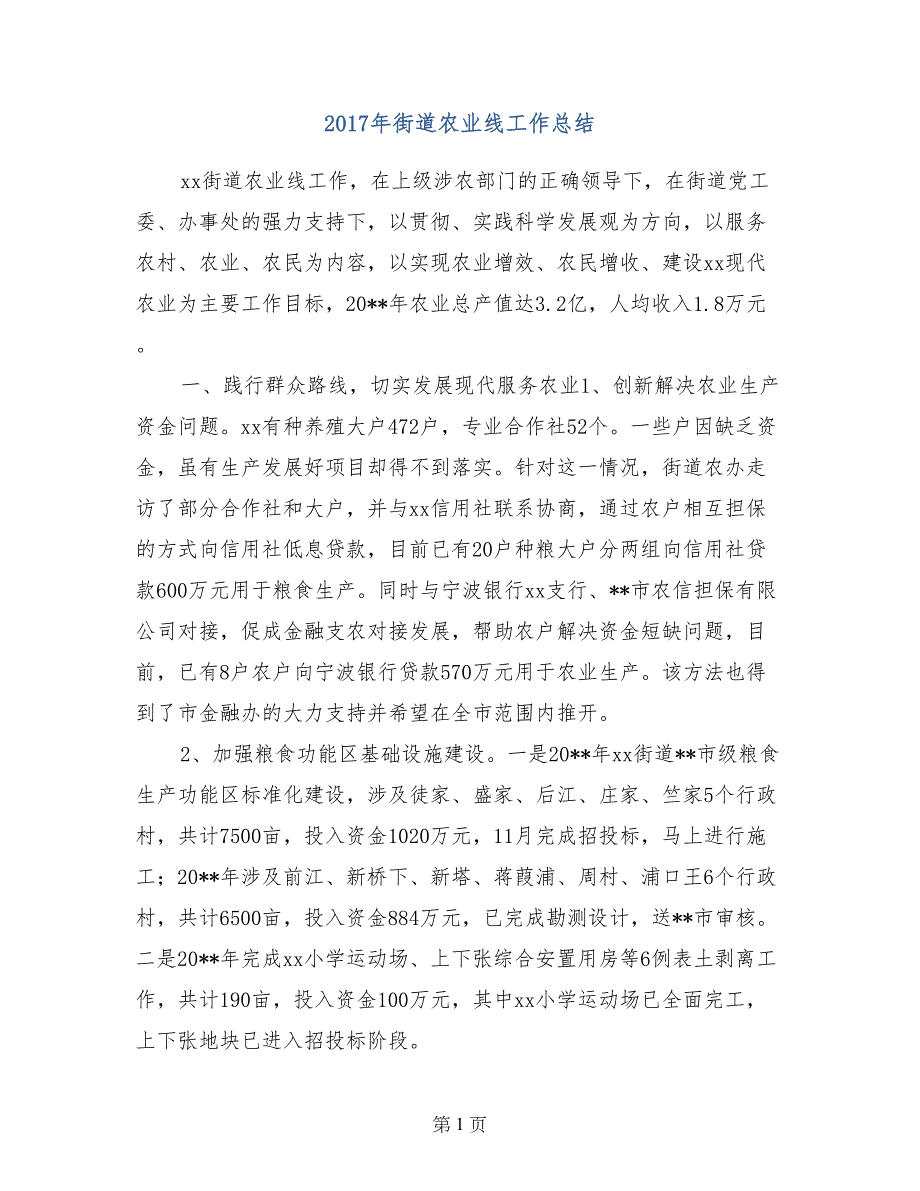 2017年街道农业线工作总结
xx街道农业线工作，在上级涉农部门的正确领导下，在街道党工
委、办事处的强力支持下，以贯彻、实践科学发展观为方向，以服务
农村、农业、农民为内容，以实现农业增效、农民增收、建设xx现代
农业为主要工作目标，20**年农业总产值达3.2亿，人均收入1.8万元
。
一、践行群众路线，切实发展现代服务农业1、创新解决农业生产
资金问题。xx有种养殖大户472户，专业合作社52个。一些户因缺乏资
金，虽有生产发展好项目却得不到落实。针对这一情况，街道农办走
访了部分合作社和大户，并与xx信用社联系协商，通过农户相互担保
的方式向信用社低息贷款，目前已有20户种粮大户分两组向信用社贷
款600万元用于粮食生产。同时与宁波银行xx支行、**市农信担保有限
公司对接，促成金融支农对接发展，帮助农户解决资金短缺问题，目
前，已有8户农户向宁波银行贷款570万元用于农业生产。该方法也得
到了市金融办的大力支持并希望在全市范围内推开。
2、加强粮食功能区基础设施建设。一是20**年xx街道**市级粮食
生产功能区标准化建设，涉及徒家、盛家、后江、庄家、竺家5个行政
村，共计7500亩，投入资金1020万元，11月完成招投标，马上进行施
工；20**年涉及前江、新桥下、新塔、蒋葭浦、周村、浦口王6个行政
村，共计6500亩，投入资金884万元，已完成勘测设计，送**市审核。
二是20**年完成xx小学运动场、上下张综合安置用房等6例表土剥离工
作，共计190亩，投入资金100万元，其中xx小学运动场已全面完工，
上下张地块已进入招投标阶段。
第 1 页